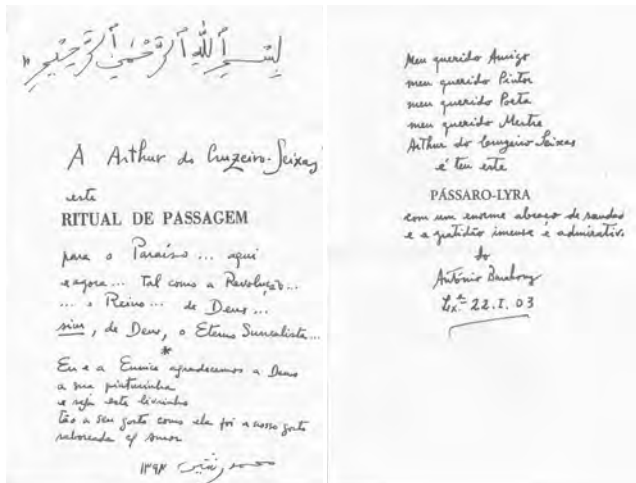 بسم الله الرحمن الرحيم
A Arthur do Cruzeiro-Seixas
este
RITUAL DE PASSAGEM
para o Paraíso ... aqui
e agora ... tal como a Revolução ...
... o Reino ... de Deus ...
sim, de Deus, o Eterno Surrealista ...
*
Eu e a Eunice agradecemos a Deus
a sua pinturinha
e seja este livrinho
tão a seu gosto como ela foi a nosso gosto
saboreada c/ amor
محمد رشيد ١٣٩٨
Meu querido Amigo
meu querido Pintor
meu querido Poeta
meu querido Mestre
Arthur do Cruzeiro Seixas
é teu este
PÁSSARO-LYRA
com um enorme abraço de saudades
e a gratidão imensa e admirativa
do
António Barahona
Lx.ª 22.I.03